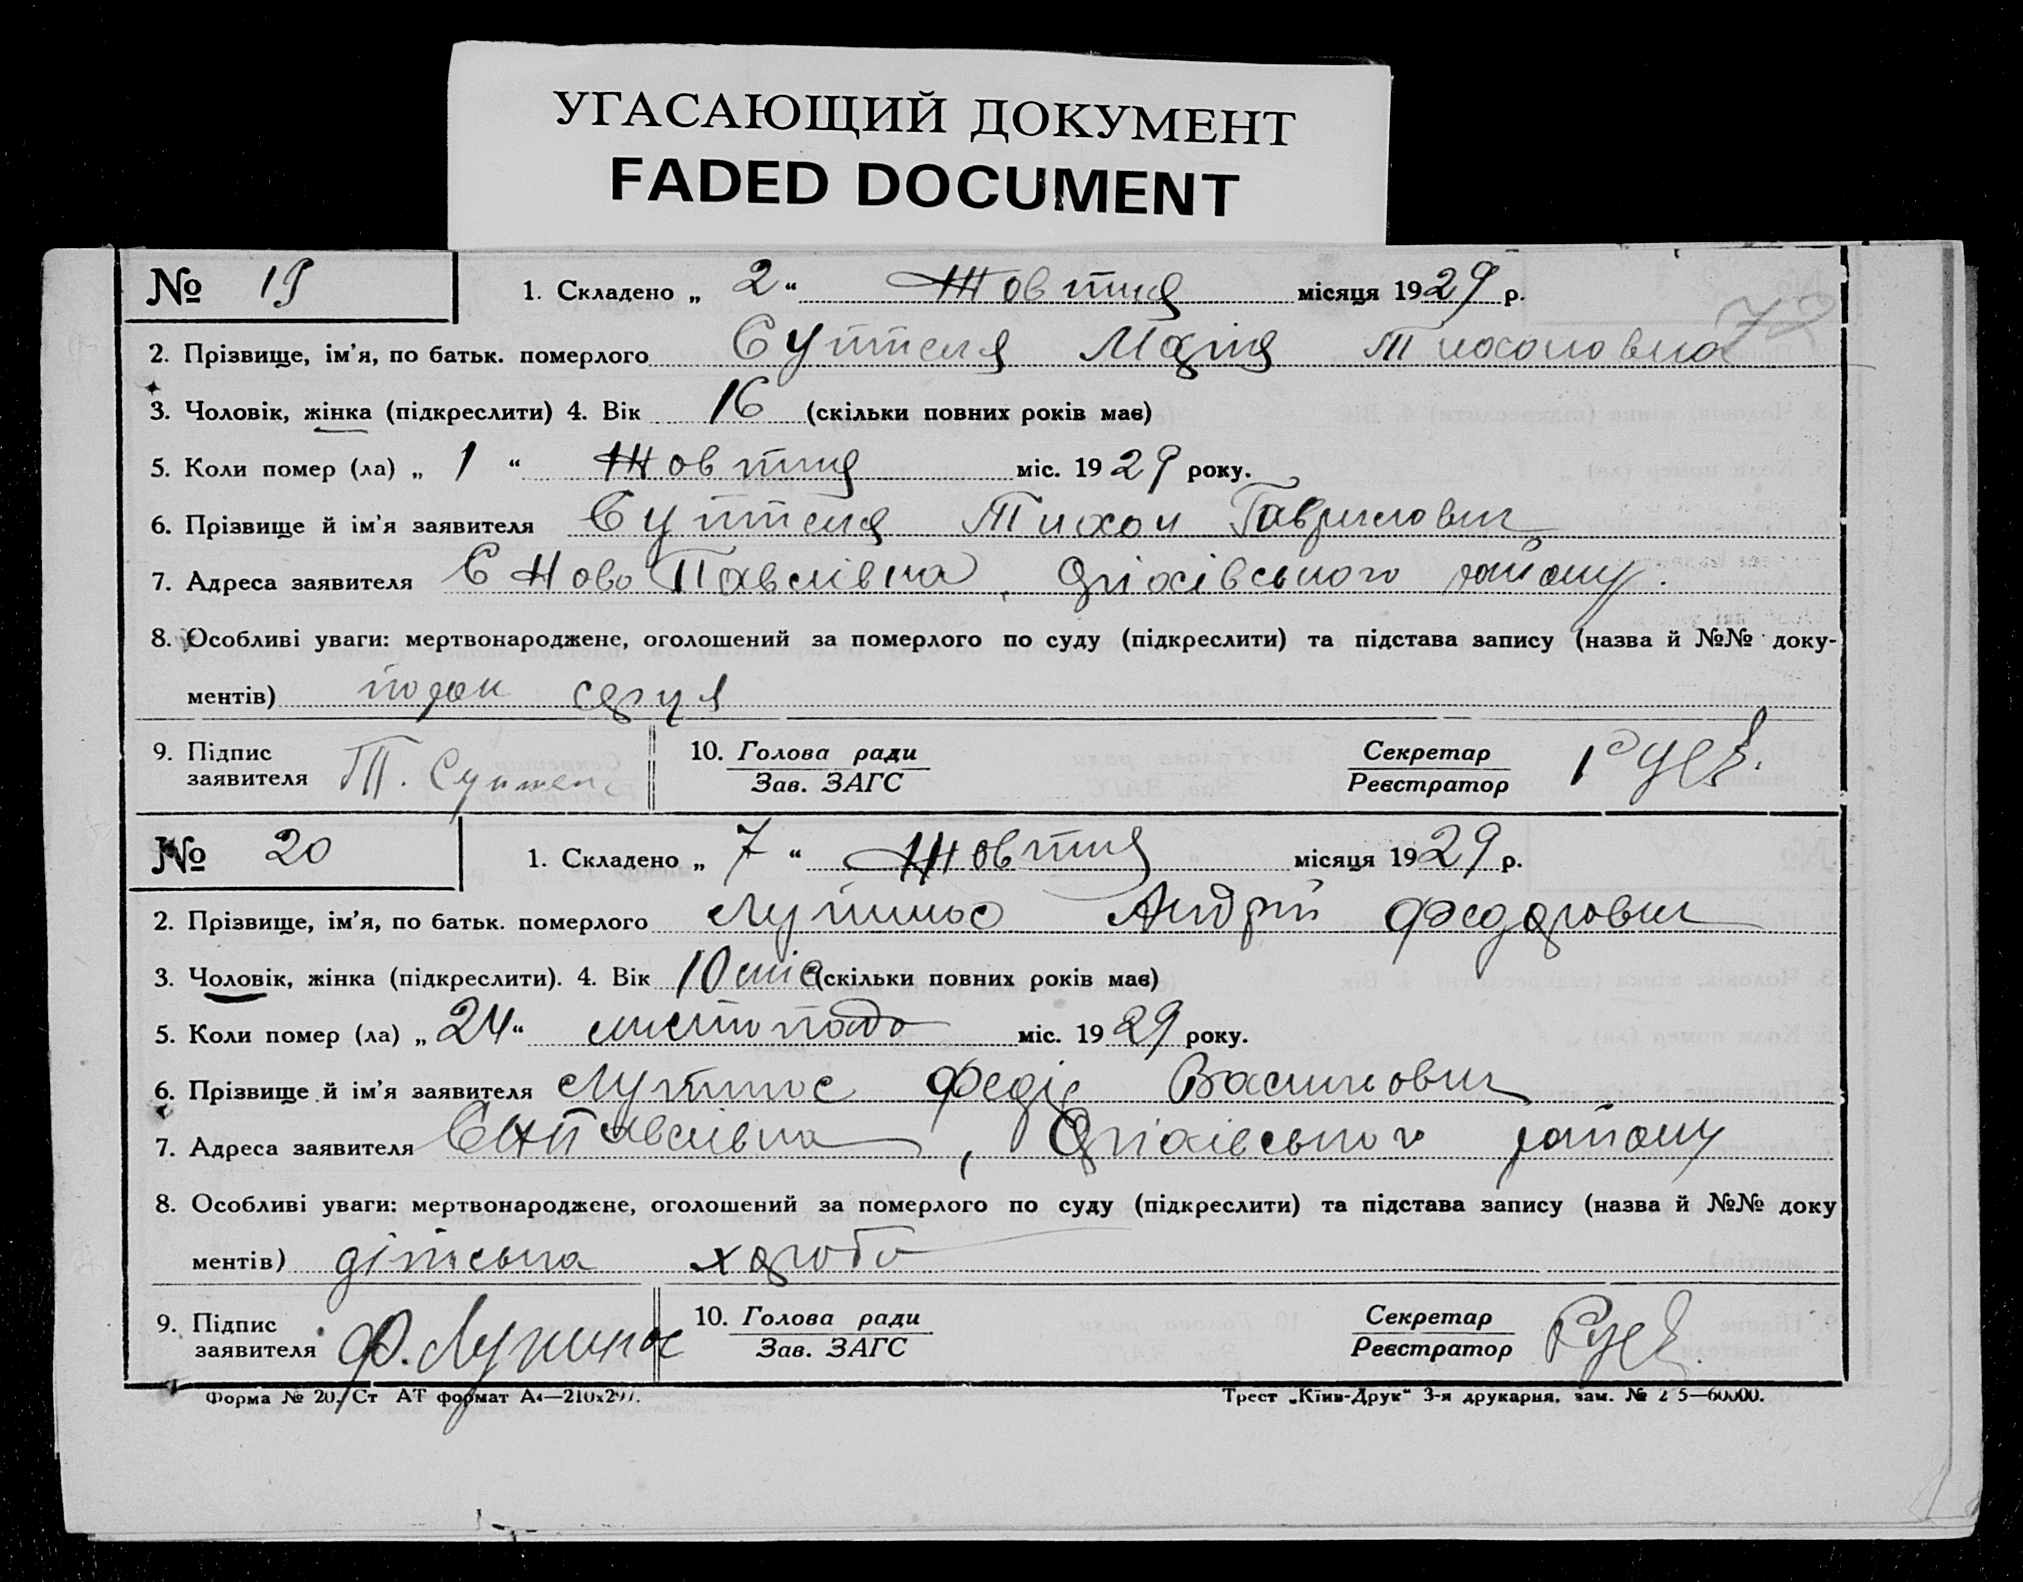 УГАСАЮЩИЙ ДОКУМЕНТ
FADED DOCUMENT
№ 19 1. Складено „ 2 “ Жовтня місяця 1929 р.
72
2. Прізвище, ім’я, по батьк. померлого Марія Тихоновна
3. Чоловік, жінка (підкреслити) 4. Вік 16 (скільки повних років має)
5. Коли помер (ла) „ 1 “ Жовтня міс. 1929 року.
6. Прізвище й ім’я заявителя Тихон Гаврилович
7. Адреса заявителя С Ново Павлівка, Оріхівського району.
8. Особливі уваги: мертвонароджене, оголошений за померлого по суду (підкреслити) та підстава запису (назва й №№ доку-
ментів) порок серця
9. Підпис заявителя Т. 10. Голова ради Секретар
Зав. ЗАГС Реєстратор
№ 20 1. Складено „ 7 “ Жовтня місяця 1929 р.
2. Прізвище, ім’я, по батьк. померлого Андрій Федорович
3. Чоловік, жінка (підкреслити). 4. Вік 10 міс (скільки повних років має)
5. Коли помер (ла) „ 24 “ листопада міс. 1929 року.
6. Прізвище й ім’я заявителя Федір Васильович
7. Адреса заявителя С Н Павлівка, Оріхівського району
8. Особливі уваги: мертвонароджене, оголошений за померлого по суду (підкреслити) та підстава запису (назва й №№ доку
ментів) дітська хороба
9. Підпис заявителя Ф. 10. Голова ради Секретар
Зав. ЗАГС Реєстратор
Форма № 20. Ст АТ формат А4—210х297. Трест „Київ-Друк“ 3-я друкарня, зам. № 5—60000.